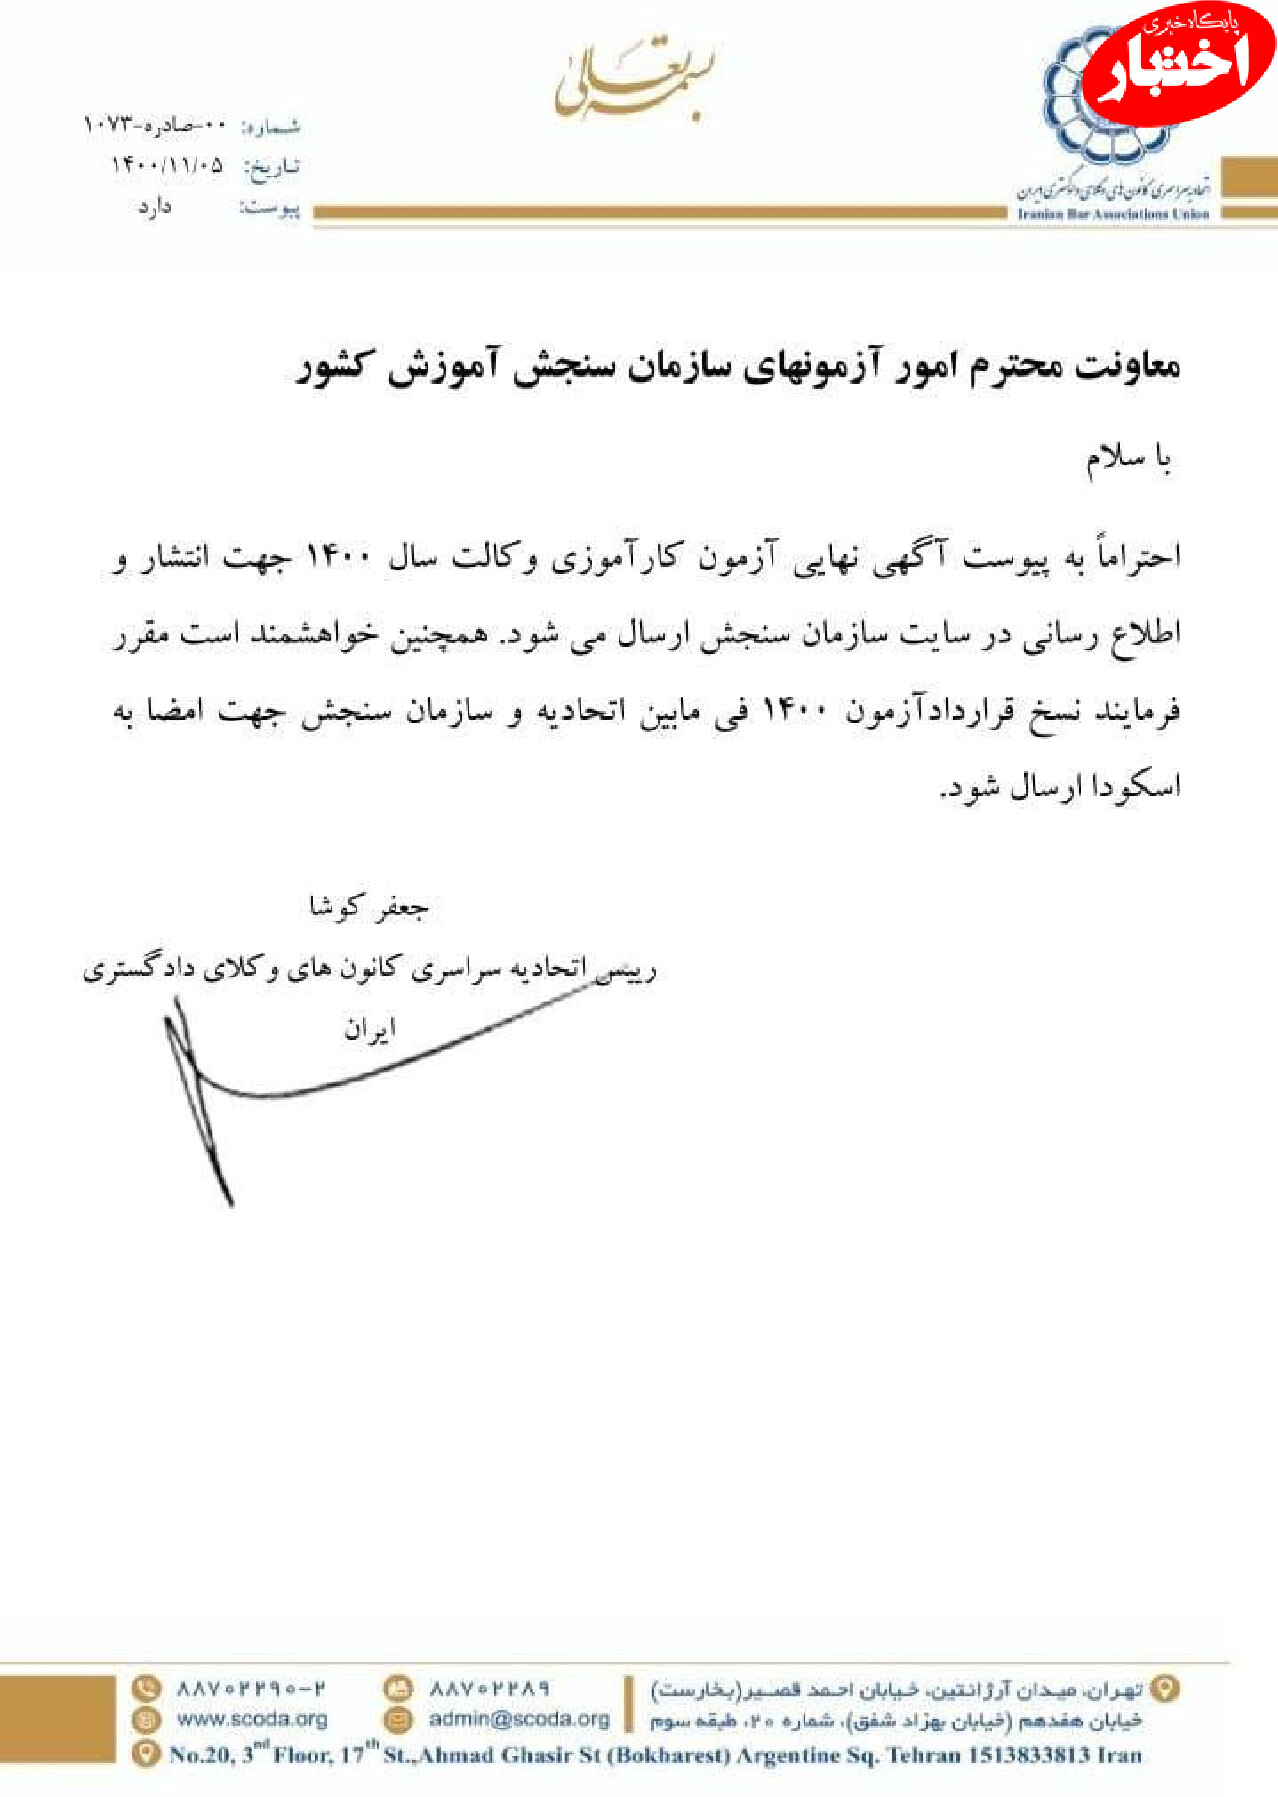 پایگاه خبری
اختبار
بسمه تعالی
شماره: ۰۰-صادره-۱۰۷۳
تاریخ: ۱۴۰۰/۱۱/۰۵
پیوست: دارد
اتحادیه سراسری کانون های وکلای دادگستری ایران
Iranian Bar Associations Union
معاونت محترم امور آزمونهای سازمان سنجش آموزش کشور
با سلام
احتراماً به پیوست آگهی نهایی آزمون کارآموزی وکالت سال ۱۴۰۰ جهت انتشار و
اطلاع رسانی در سایت سازمان سنجش ارسال می شود. همچنین خواهشمند است مقرر
فرمایند نسخ قراردادآزمون ۱۴۰۰ فی مابین اتحادیه و سازمان سنجش جهت امضا به
اسکودا ارسال شود.
جعفر کوشا
رییس اتحادیه سراسری کانون های وکلای دادگستری
ایران
تهران، میدان آرژانتین، خیابان احمد قصیر(بخارست)
خیابان هفدهم (خیابان بهزاد شفق)، شماره ۲۰، طبقه سوم
۸۸۷۰۲۲۸۹
admin@scoda.org
۸۸۷۰۲۲۹۰-۲
www.scoda.org
No.20, 3nd Floor, 17th St.,Ahmad Ghasir St (Bokharest) Argentine Sq. Tehran 1513833813 Iran